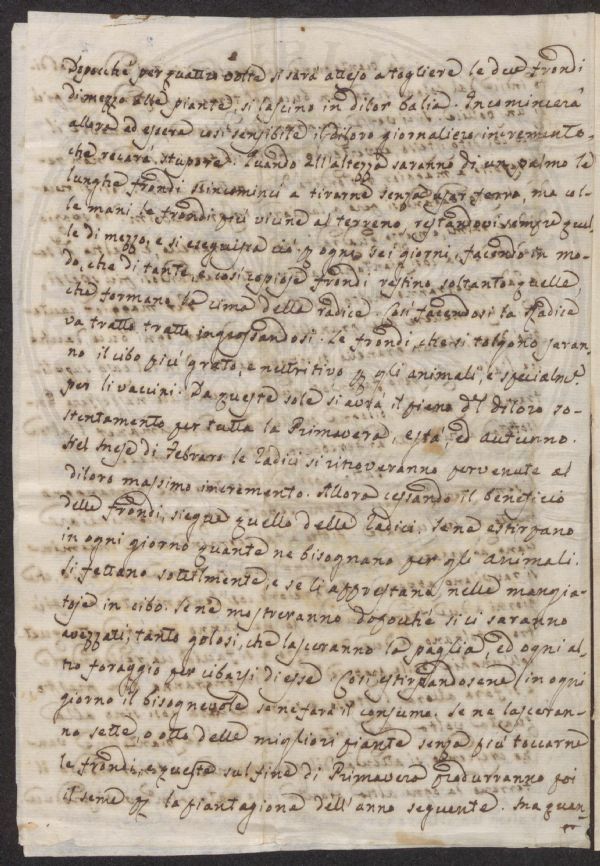 Dopocché per quattro volte si sarà atteso a togliere le due frondi
di mezzo alle piante, si lascino in di lor balia. Incomincerà
allora ad essere così sensibile il di loro giornaliero incremento,
che recarà stupore. Quando all'altezza saranno di un palmo le
lunghe frondi s'incominci a tirarne senza usar ferro, ma col-
le mani le frondi più vicine al terreno, restandovi sempre quel-
le di mezzo, e si eseguisca ciò p ogni sei giorni, facendo in mo-
do, che di tante, e così copiose frondi restino soltanto quelle,
che formano la cima della radice. Così facendosi la Radice
va tratto tratto ingrossandosi. Le frondi, che si tolgono saran-
no il cibo più grato, e nutritivo p gli animali, e specialm.e
per li vaccini. Da queste sole si avrà il pieno del di loro so-
stentamento per tutta la Primavera, està, ed Autunno.
Nel mese di Febraro le Radici si ritroveranno pervenute al
di loro massimo incremento. Allora cessando il beneficio
delle frondi, siegue quello delle Radici. Se ne estirpano
in ogni giorno quante ne bisognano per gli animali.
Si fettano sottilmente, e se li apprestano nelle mangia-
toje in cibo. Se ne mostreranno dopocché si ci saranno
avezzati, tanto golosi, che lasceranno la paglia, ed ogni al-
tro foraggio per cibarsi di esse. Così estirpandosene in ogni
giorno il bisognevole se ne farà il consumo. Se ne lasceran-
no sette, o otto delle migliori piante senza più toccarne
le frondi, e queste sul fine di Primavera produrranno poi
il seme p la piantagione dell'anno seguente. Ma quan-